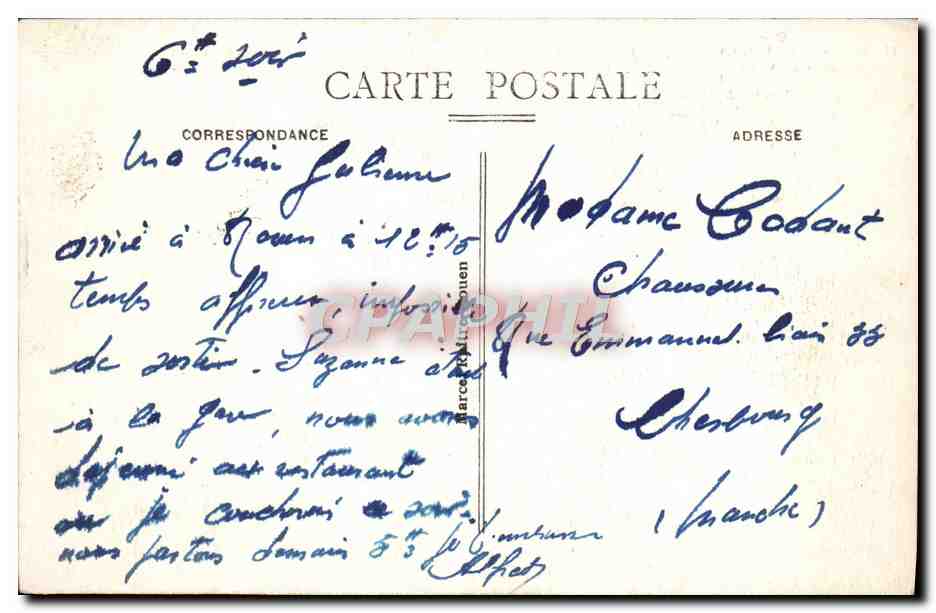 6 H soir
CARTE POSTALE
CORRESPONDANCE
ADRESSE
Ma chère Julienne
arrivé à Rouen à 12 H 15
temps affreux, impossible
de sortir. Suzanne était
à la gare, nous avons
déjeuné au restaurant
ou je coucherai ce soir
nous partons demain 5 H
Je t'embrasse
Alfred
Madame Cadant
Chaussures
Rue Emmanuel liais 33
Cherbourg
(Manche)
Marcel Rouen
CPAPHIL